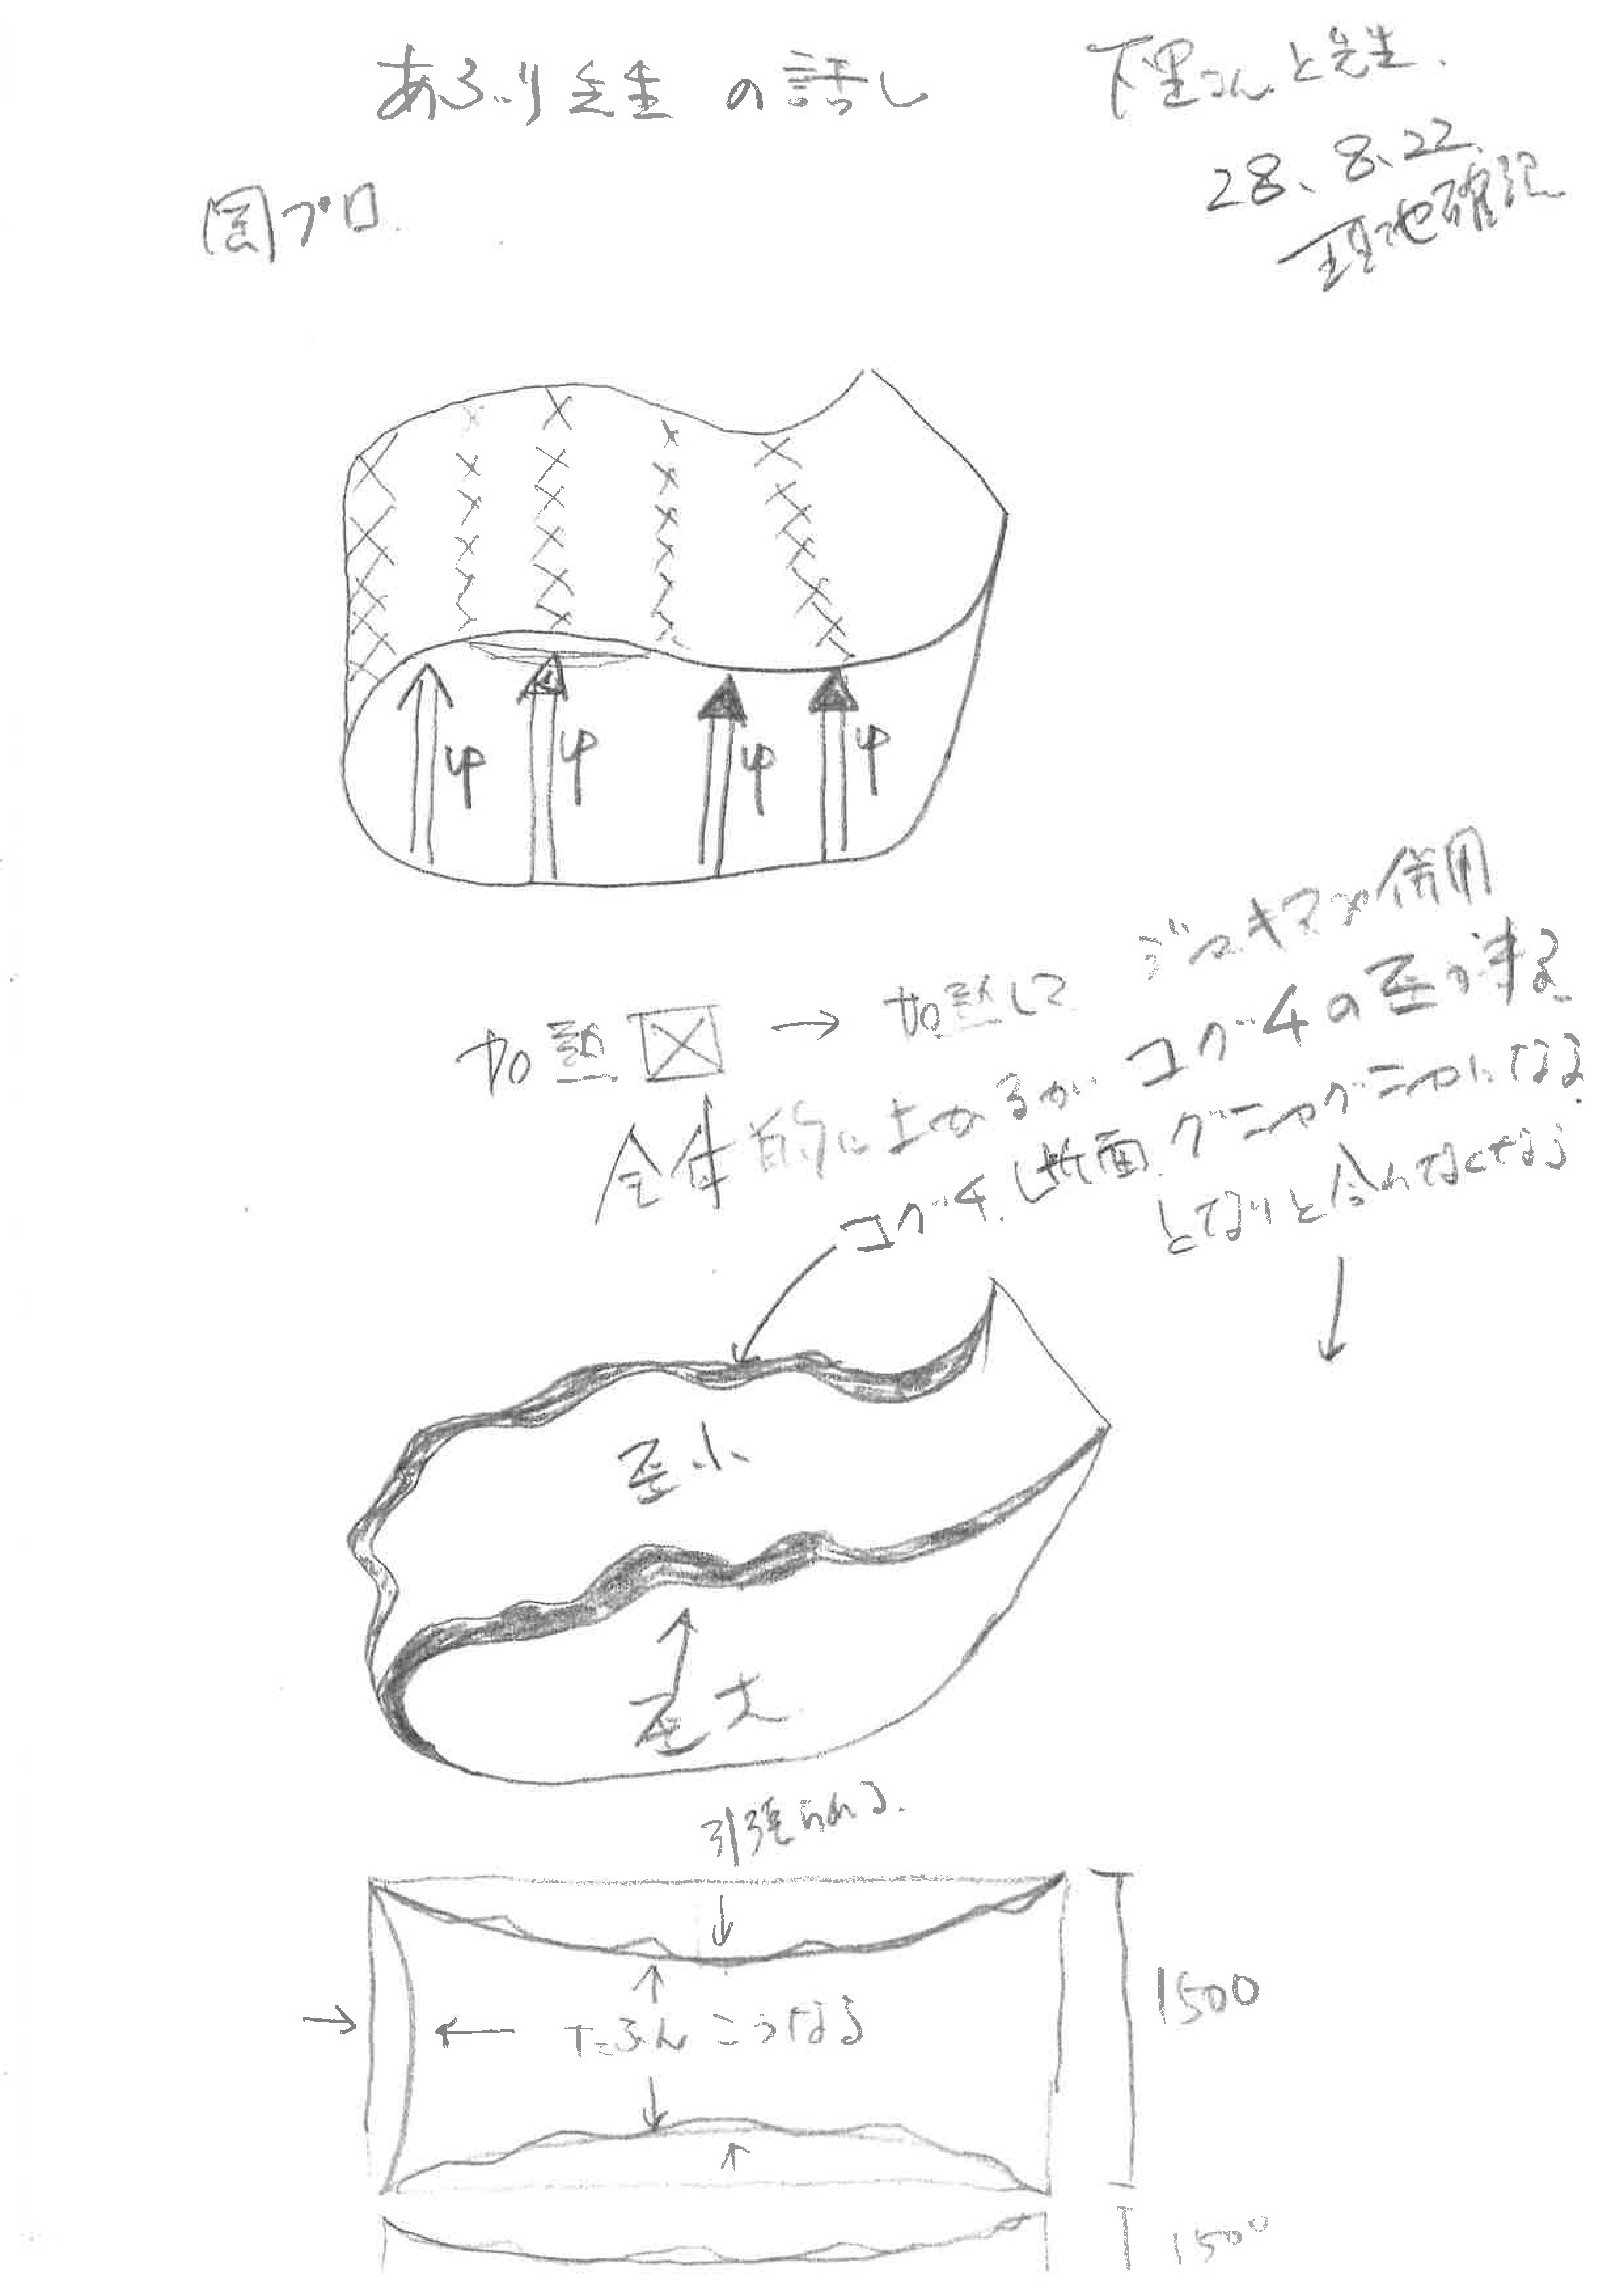 あぶり先生の話し
下里さんと先生.
28、8、22.
現地確認
岡プロ
中
中
中
中
加熱 → 加熱して ジャッキアップ併用
全体的に上がるが コグチの歪が半る
コグチ.断面.グニャグニャになる.
となりと合わなくなる
↓
歪小
歪大
引張られる.
1500
たぶんこうなる
1500